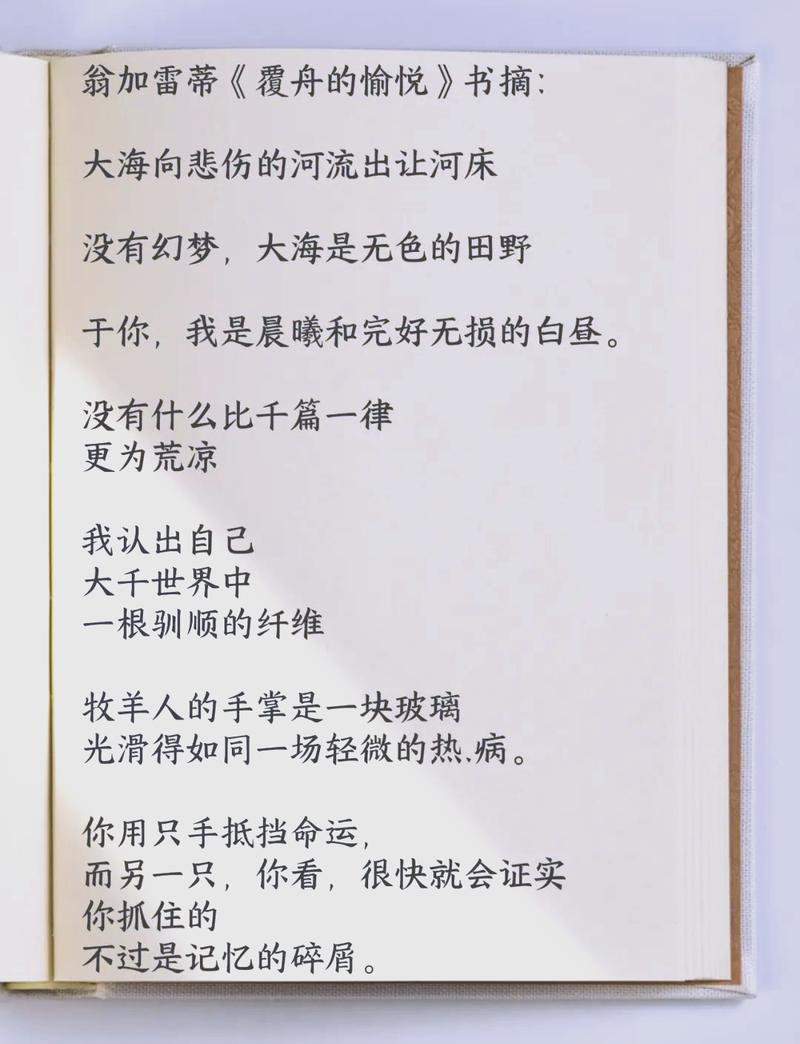 翁加雷蒂《覆舟的愉悦》书摘：
大海向悲伤的河流出让河床
没有幻梦，大海是无色的田野
于你，我是晨曦和完好无损的白昼。
没有什么比千篇一律
更为荒凉
我认出自己
大千世界中
一根驯顺的纤维
牧羊人的手掌是一块玻璃
光滑得如同一场轻微的热.病。
你用只手抵挡命运，
而另一只，你看，很快就会证实
你抓住的
不过是记忆的碎屑。